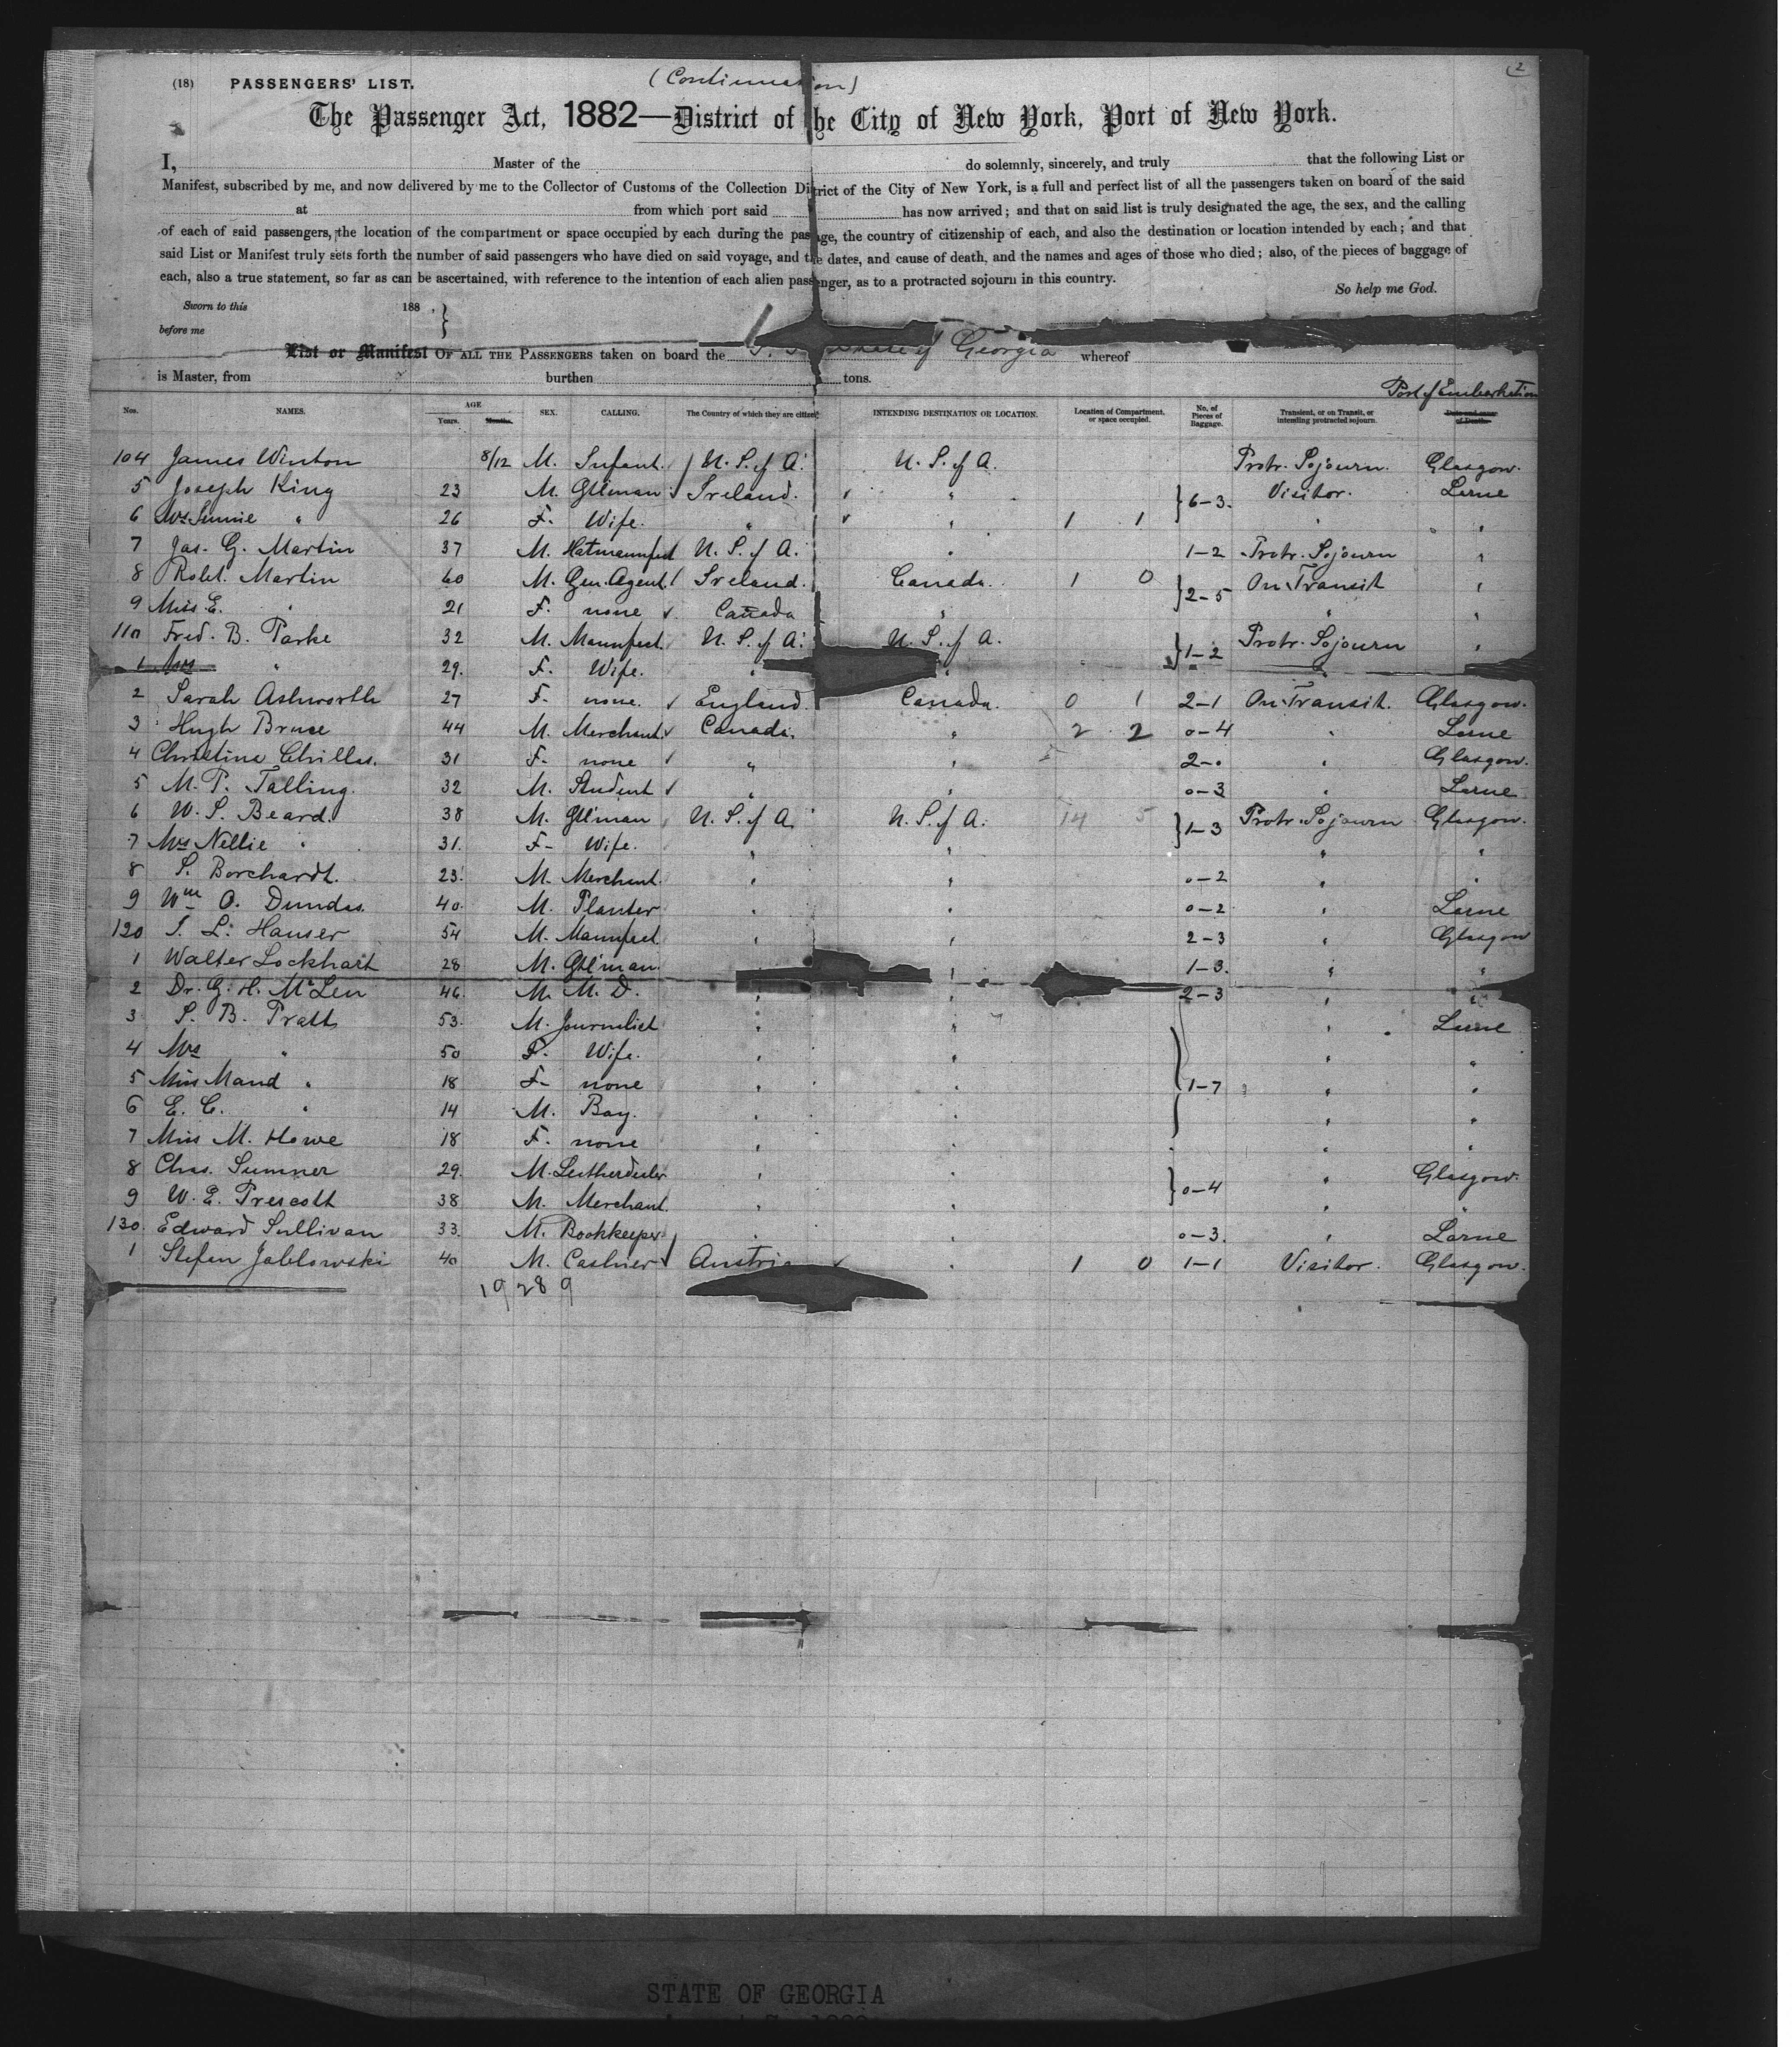 (2
(18) PASSENGERS' LIST. (Continuation)
The Passenger Act, 1882—District of the City of New York, Port of New York.
I, Master of the do solemnly, sincerely, and truly that the following List or
Manifest, subscribed by me, and now delivered by me to the Collector of Customs of the Collection District of the City of New York, is a full and perfect list of all the passengers taken on board of the said
at from which port said has now arrived; and that on said list is truly designated the age, the sex, and the calling
of each of said passengers, the location of the compartment or space occupied by each during the passage, the country of citizenship of each, and also the destination or location intended by each; and that
said List or Manifest truly sets forth the number of said passengers who have died on said voyage, and the dates, and cause of death, and the names and ages of those who died; also, of the pieces of baggage of
each, also a true statement, so far as can be ascertained, with reference to the intention of each alien passenger, as to a protracted sojourn in this country.
So help me God.
Sworn to this 188 , }
before me
List or Manifest OF ALL THE PASSENGERS taken on board the S. S. State of Georgia whereof
is Master, from burthen tons.
Port of Embarkation
Nos. NAMES. AGE Years. Months. SEX. CALLING. The Country of which they are citizens INTENDING DESTINATION OR LOCATION. Location of Compartment, or space occupied. No. of Pieces of Baggage. Transient, or on Transit, or intending protracted sojourn. Date and cause of Death.
104 James Winton 8/12 M. Infant. U. S. of A. U. S. of A. Protr. Sojourn. Glasgow.
5 Joseph King 23 M. Gtleman Ireland. " } 6-3. Visitor. Larne
6 Mrs " 26 F. Wife. " " 1 1 " "
7 Jas. G. Martin 37 M. U. S. of A. " 1-2 Protr. Sojourn "
8 Robt. Martin 60 M. Gen. Agent. Ireland. Canada. 1 0 } 2-5 On Transit "
9 Miss E. " 21 F. none Canada " " "
110 Fred. B. Parke 32 M. Manufact. U. S. of A. U. S. of A. } 1-2 Protr. Sojourn "
1 Mrs " 29. F. Wife. " "
2 Sarah Ashworth 27 F. none. England. Canada. 0 1 2-1 On Transit. Glasgow.
3 Hugh Bruce 44 M. Merchant Canada. " 2 2 0-4 " Larne
4 Christina Chillas. 31 F. none " " 2-0 " Glasgow.
5 M. P. Talling. 32 M. Student " " 0-3 " Larne
6 W. S. Beard. 38 M. Gtleman U. S. of A. U. S. of A. 14 5 } 1-3 Protr. Sojourn Glasgow.
7 Mrs Nellie " 31. F. Wife. " " " "
8 S. Borchardt. 23. M. Merchant. " " 0-2 " "
9 Wm O. Dundas. 40. M. Planter " " 0-2 " Larne
120 S. L. Hauser 54 M. Manufact. " " 2-3 " Glasgow
1 Walter Lockhart 28 M. Gtleman. " 1-3. " "
2 Dr. G. H. McLen 46. M. M. D. " " 2-3 " "
3 S. B. Pratt 53. M. Journalist " " " Larne
4 Mrs " 50 F. Wife. " " " "
5 Miss Maud " 18 F. none " " } 1-7 " "
6 E. C. " 14 M. Boy. " " " "
7 Miss M. Howe 18 F. none " " " "
8 Chas. Sumner 29. M. Leatherdealer " " } 0-4 " Glasgow.
9 W. E. Prescott 38 M. Merchant. " " " "
130. Edward Sullivan 33. M. Bookkeeper " " 0-3. " Larne
1 Stefan Jablowski 40 M. Cashier Austria " 1 0 1-1 Visitor. Glasgow.
19 28 9
STATE OF GEORGIA